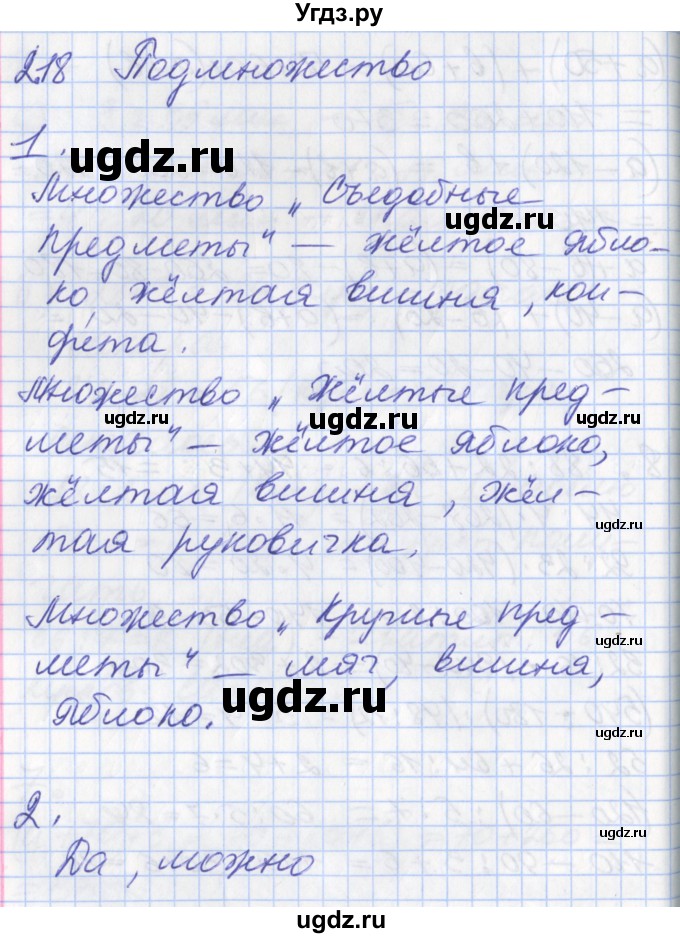 Угдз.ру
2.18 Подмножество
1.
ugdz.ru
Множество „Съедобные
ugdz.ru
предметы“ — жёлтое ябло-
ко, жёлтая вишня, кон-
фета.
Множество „Жёлтые пред-
ugdz.ru ugdz.ru
меты“ — жёлтое яблоко,
жёлтая вишня, жёл-
ugdz.ru
тая рукавичка.
Множество „Круглые пред-
ugdz.ru
меты“ — мяч, вишня,
ugdz.ru
яблоко.
ugdz.ru
2.
ugdz.ru
Да, можно
ugdz.ru